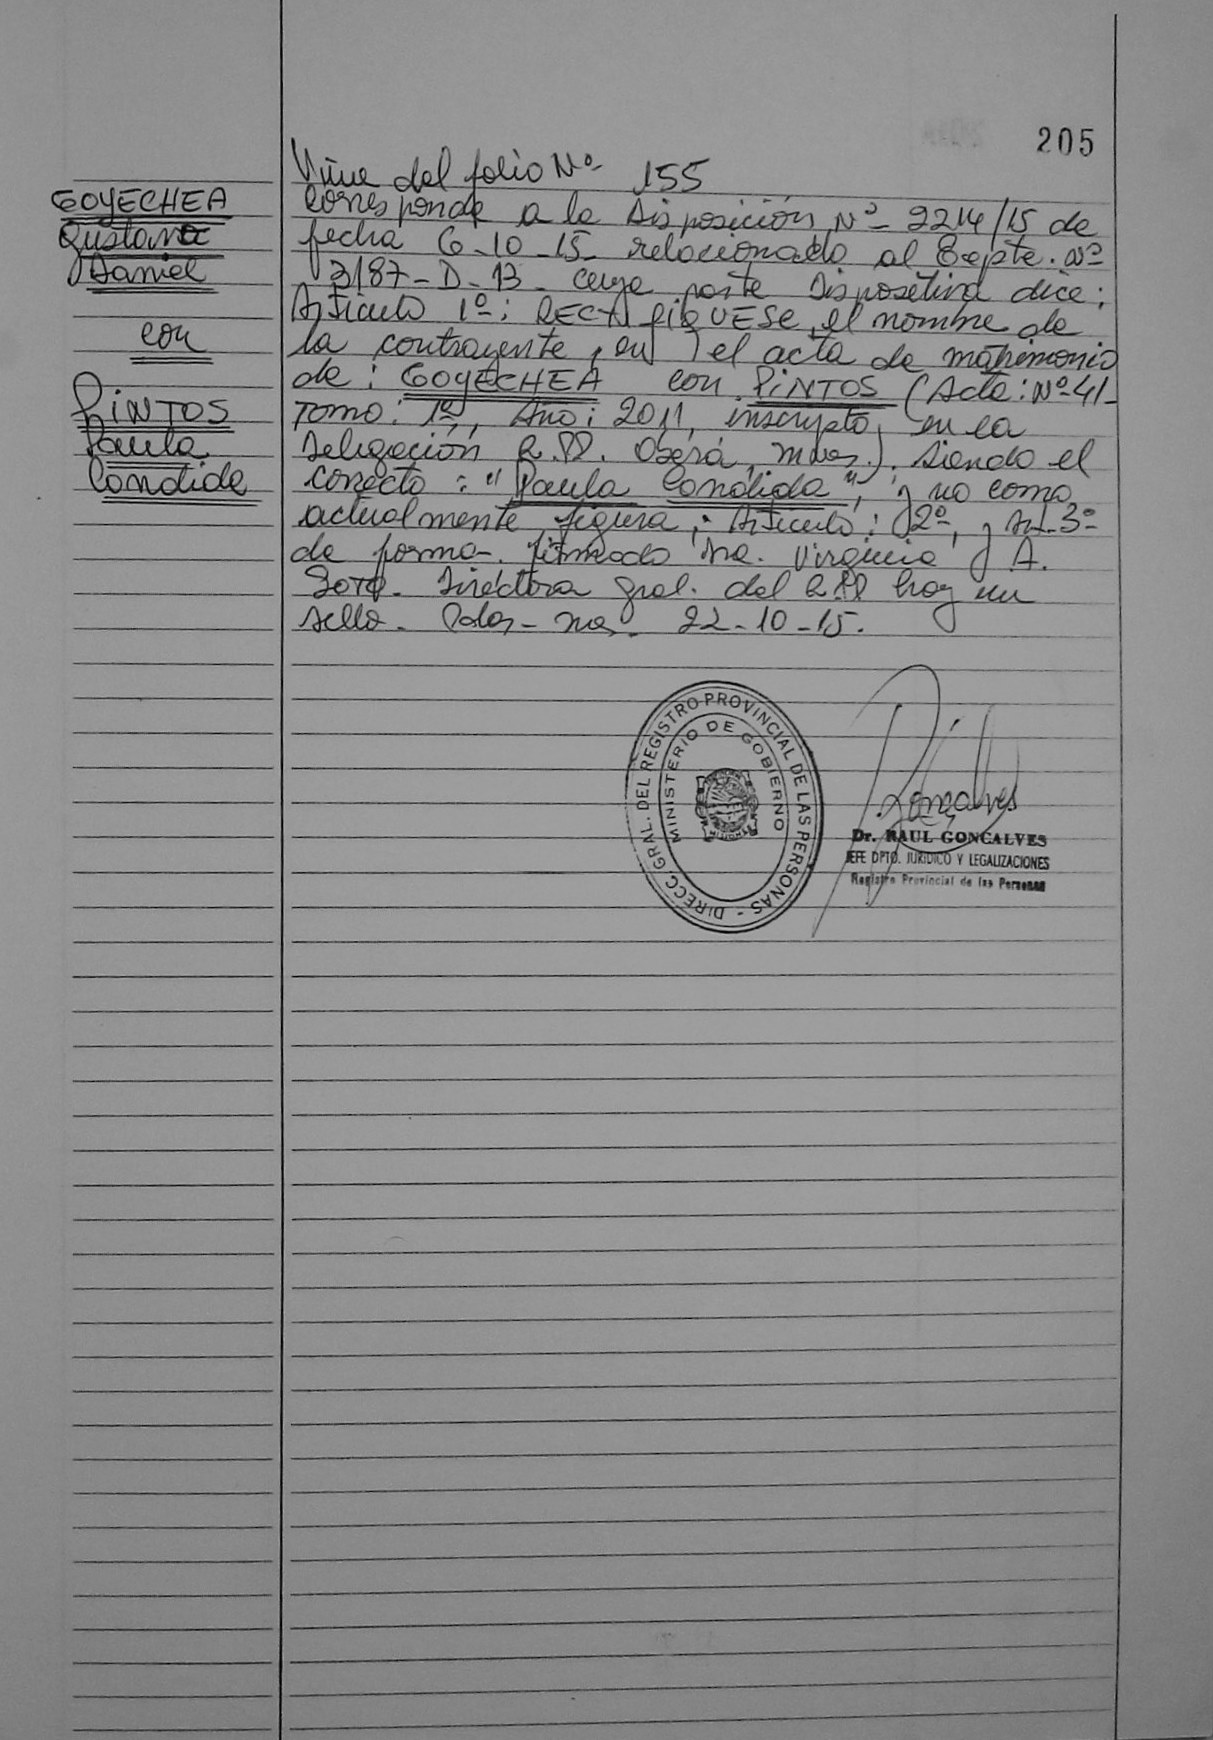 205
GOYECHEA
Gustavo
Daniel
con
PINTOS
Paula
Candida
Viene del folio Nº 155
Corresponde a la Disposición Nº 2214/15 de
fecha 6-10-15 relacionado al Expte. Nº
3187-D-13- cuya parte Dispositiva dice:
Artículo 1º: RECTIFIQUESE, el nombre de
la contrayente, en el acta de matrimonio
de: GOYECHEA con PINTOS (Acta: Nº 41-
Tomo: 1º, Año: 2011, inscripto, en la
Delegación R.PP. Oberá, mnes.). Siendo el
correcto: "Paula Candida", y no como
actualmente figura; Artículo: 2º, y Art. 3º
de forma. firmado Dra. Virginia A.
Soto. Directora Gral. del R.PP hay un
sello. Pdas-Mnes. 22-10-15.
DIRECC. GRAL. DEL REGISTRO PROVINCIAL DE LAS PERSONAS -
MINISTERIO DE GOBIERNO
Gonçalves
Dr. RAUL GONCALVES
JEFE DPTO. JURIDICO Y LEGALIZACIONES
Registro Provincial de las Personas